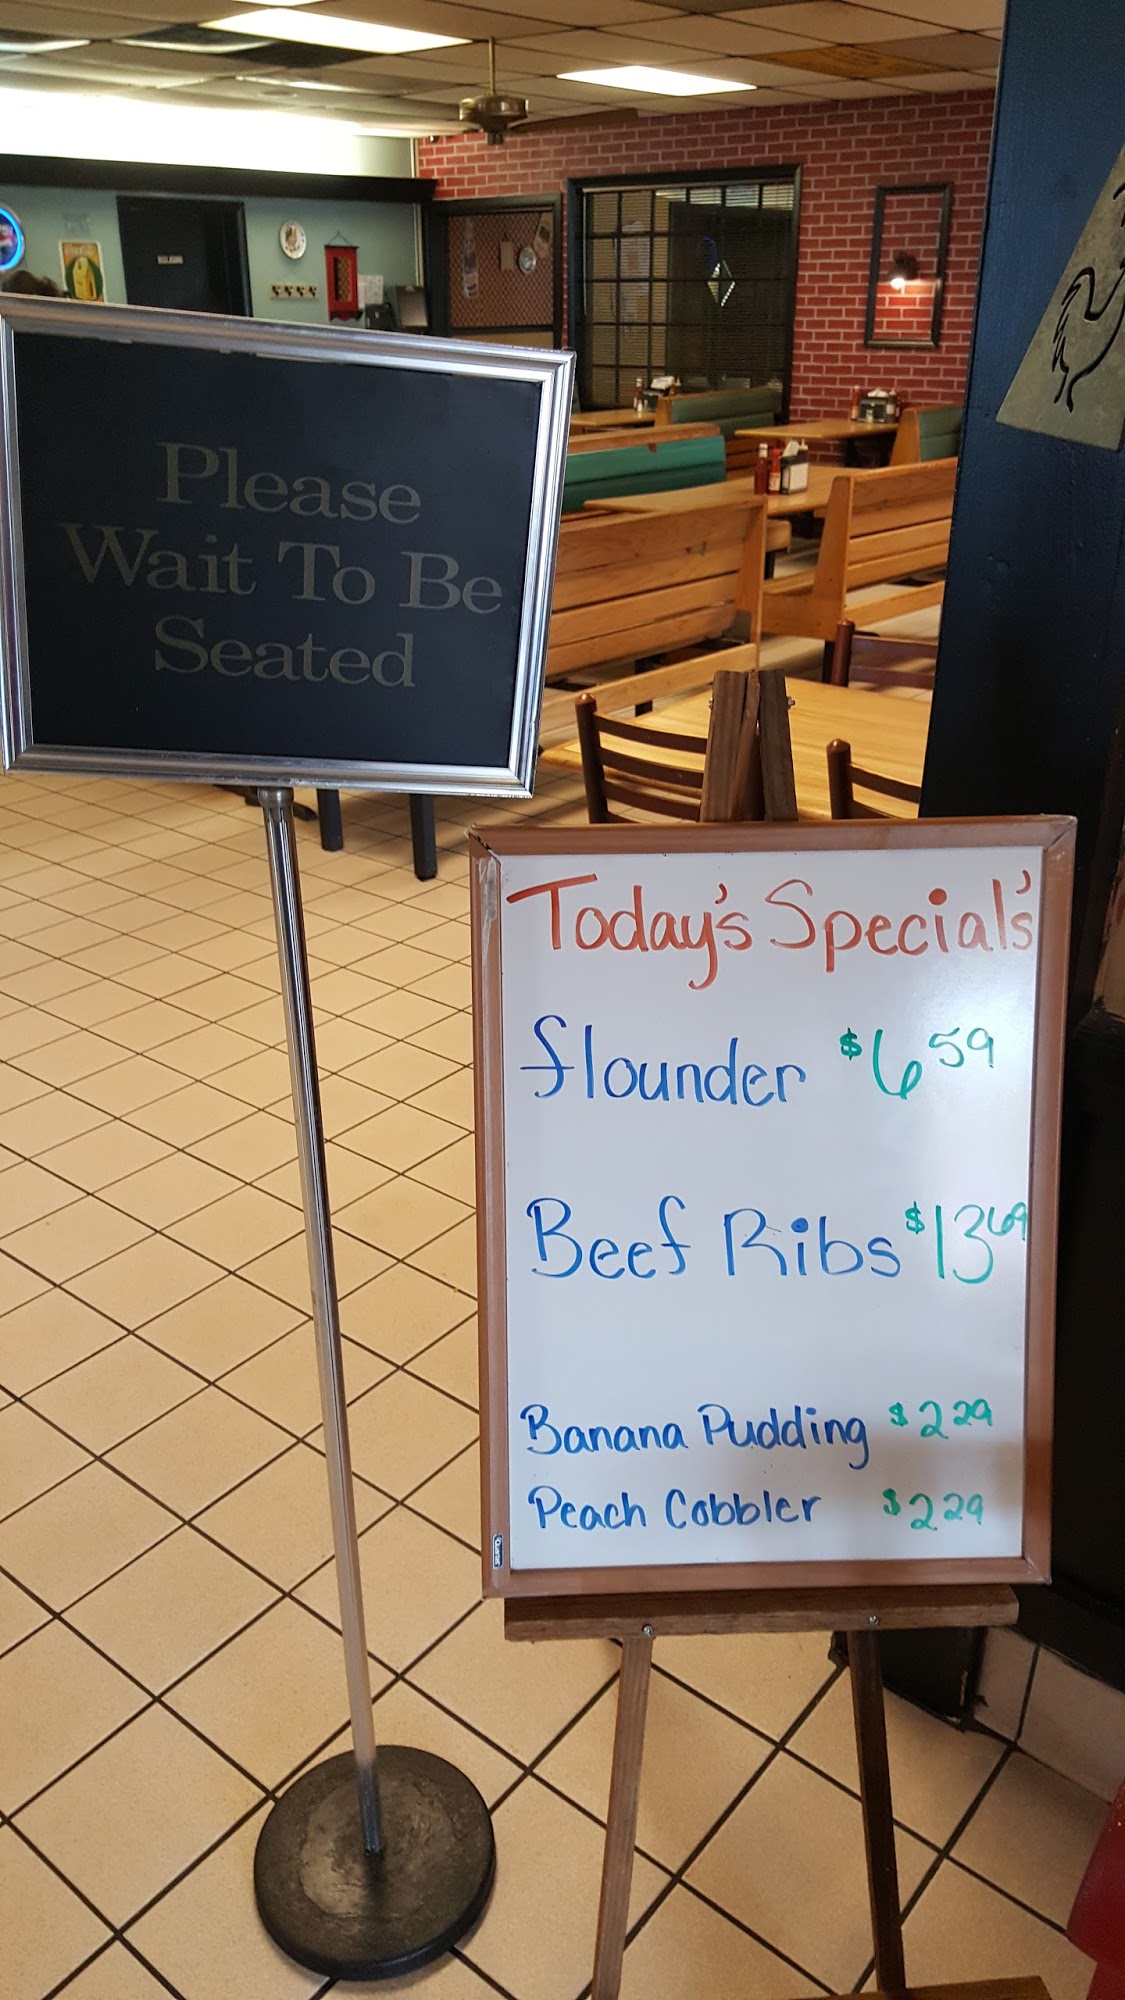 Please
Wait To Be
Seated
Today's Special's
flounder $6 59
Beef Ribs $13 69
Banana Pudding $2 29
Peach Cobbler $2 29
Quartet